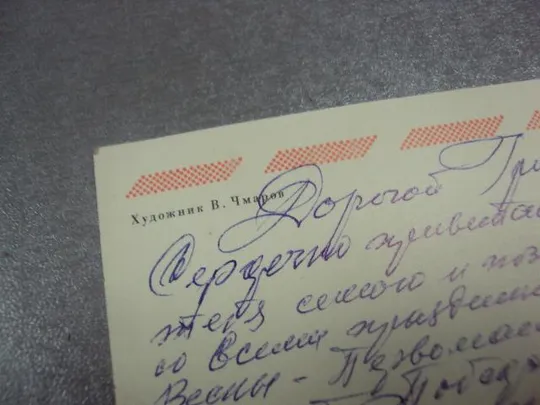 Художник В. Чмаров
Дорогой Гри
Сердечно приветст
тебя самого и поз
со всеми праздника
Весны - Первомаем
Победы